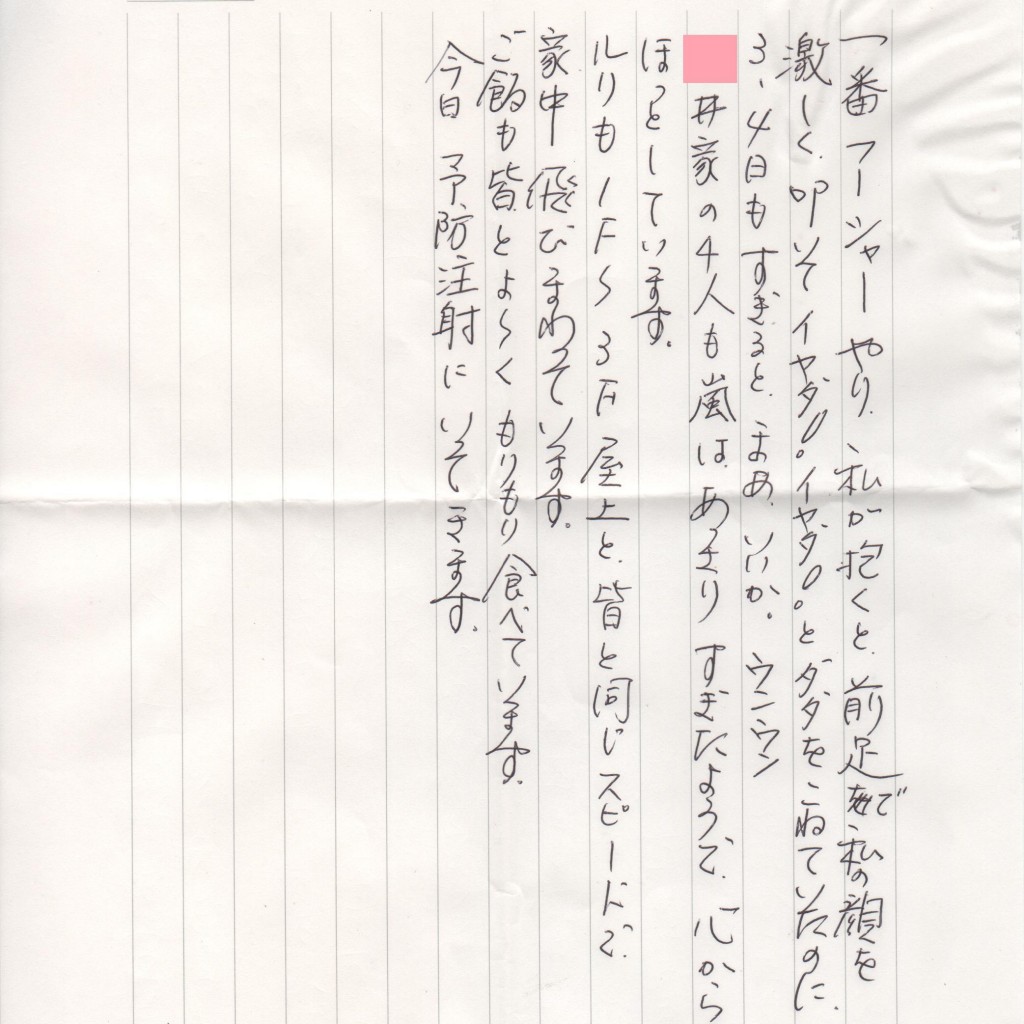 一番フーシャーやり、私が抱くと、前足で、私の顔を
激しく、叩いてイヤダ!。イヤダ!。とダダをこねていたのに、
3、4日もすぎると、まあ、いいか。ウンウン
井家の4人も嵐は、あっさりすぎたようで、心から
ほっとしています。
ルリも1F〜3F屋上と、皆と同じスピードで、
家中飛びまわっています。
ご飯も皆とよ〜くもりもり食べています。
今日予防注射にいってきます。